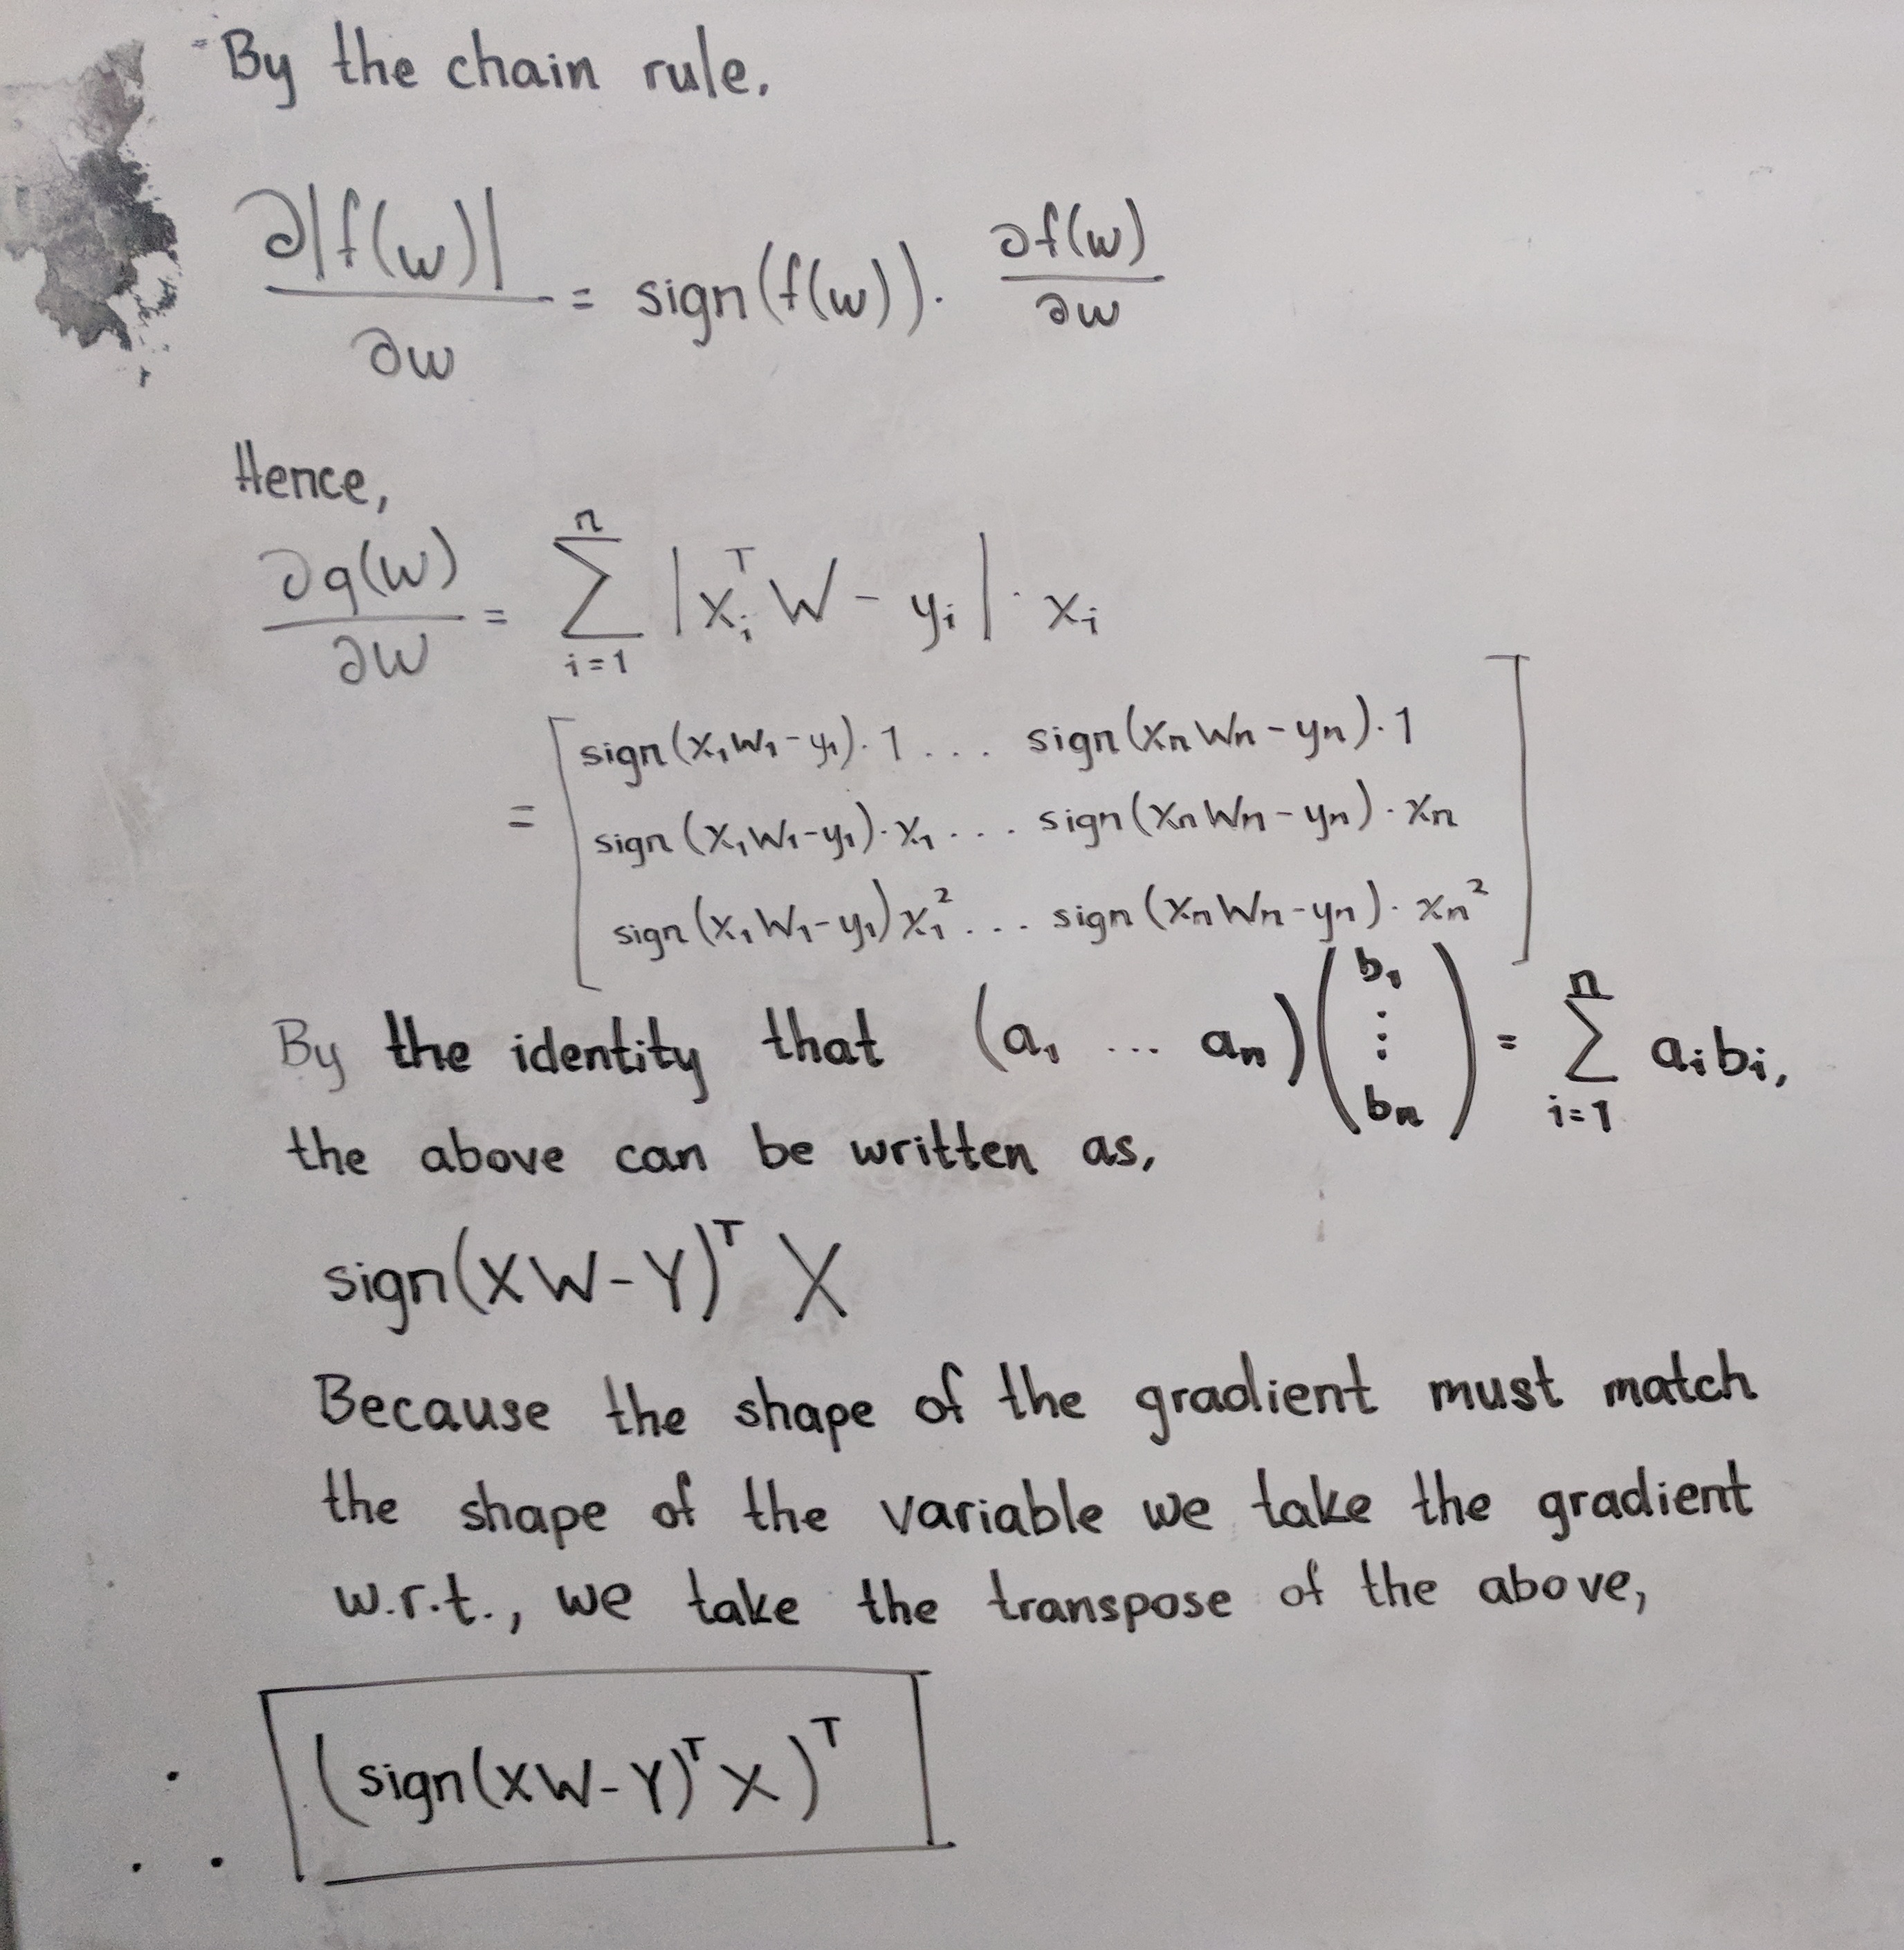 By the chain rule,
∂|f(w)| / ∂w = sign(f(w)) · ∂f(w) / ∂w
Hence,
∂g(W) / ∂W = ∑_{i=1}^{n} |x_i^T W - y_i| · x_i
= [ sign(x_1 W_1 - y_1)·1 ... sign(x_n W_n - y_n)·1
sign(x_1 W_1 - y_1)·x_1 ... sign(x_n W_n - y_n)·x_n
sign(x_1 W_1 - y_1) x_1^2 ... sign(x_n W_n - y_n)·x_n^2 ]
By the identity that (a_1 ... a_n)(b_1 ⋮ b_n) = ∑_{i=1}^{n} a_i b_i,
the above can be written as,
sign(XW - Y)^T X
Because the shape of the gradient must match
the shape of the variable we take the gradient
w.r.t., we take the transpose of the above,
∴ (sign(XW - Y)^T X)^T